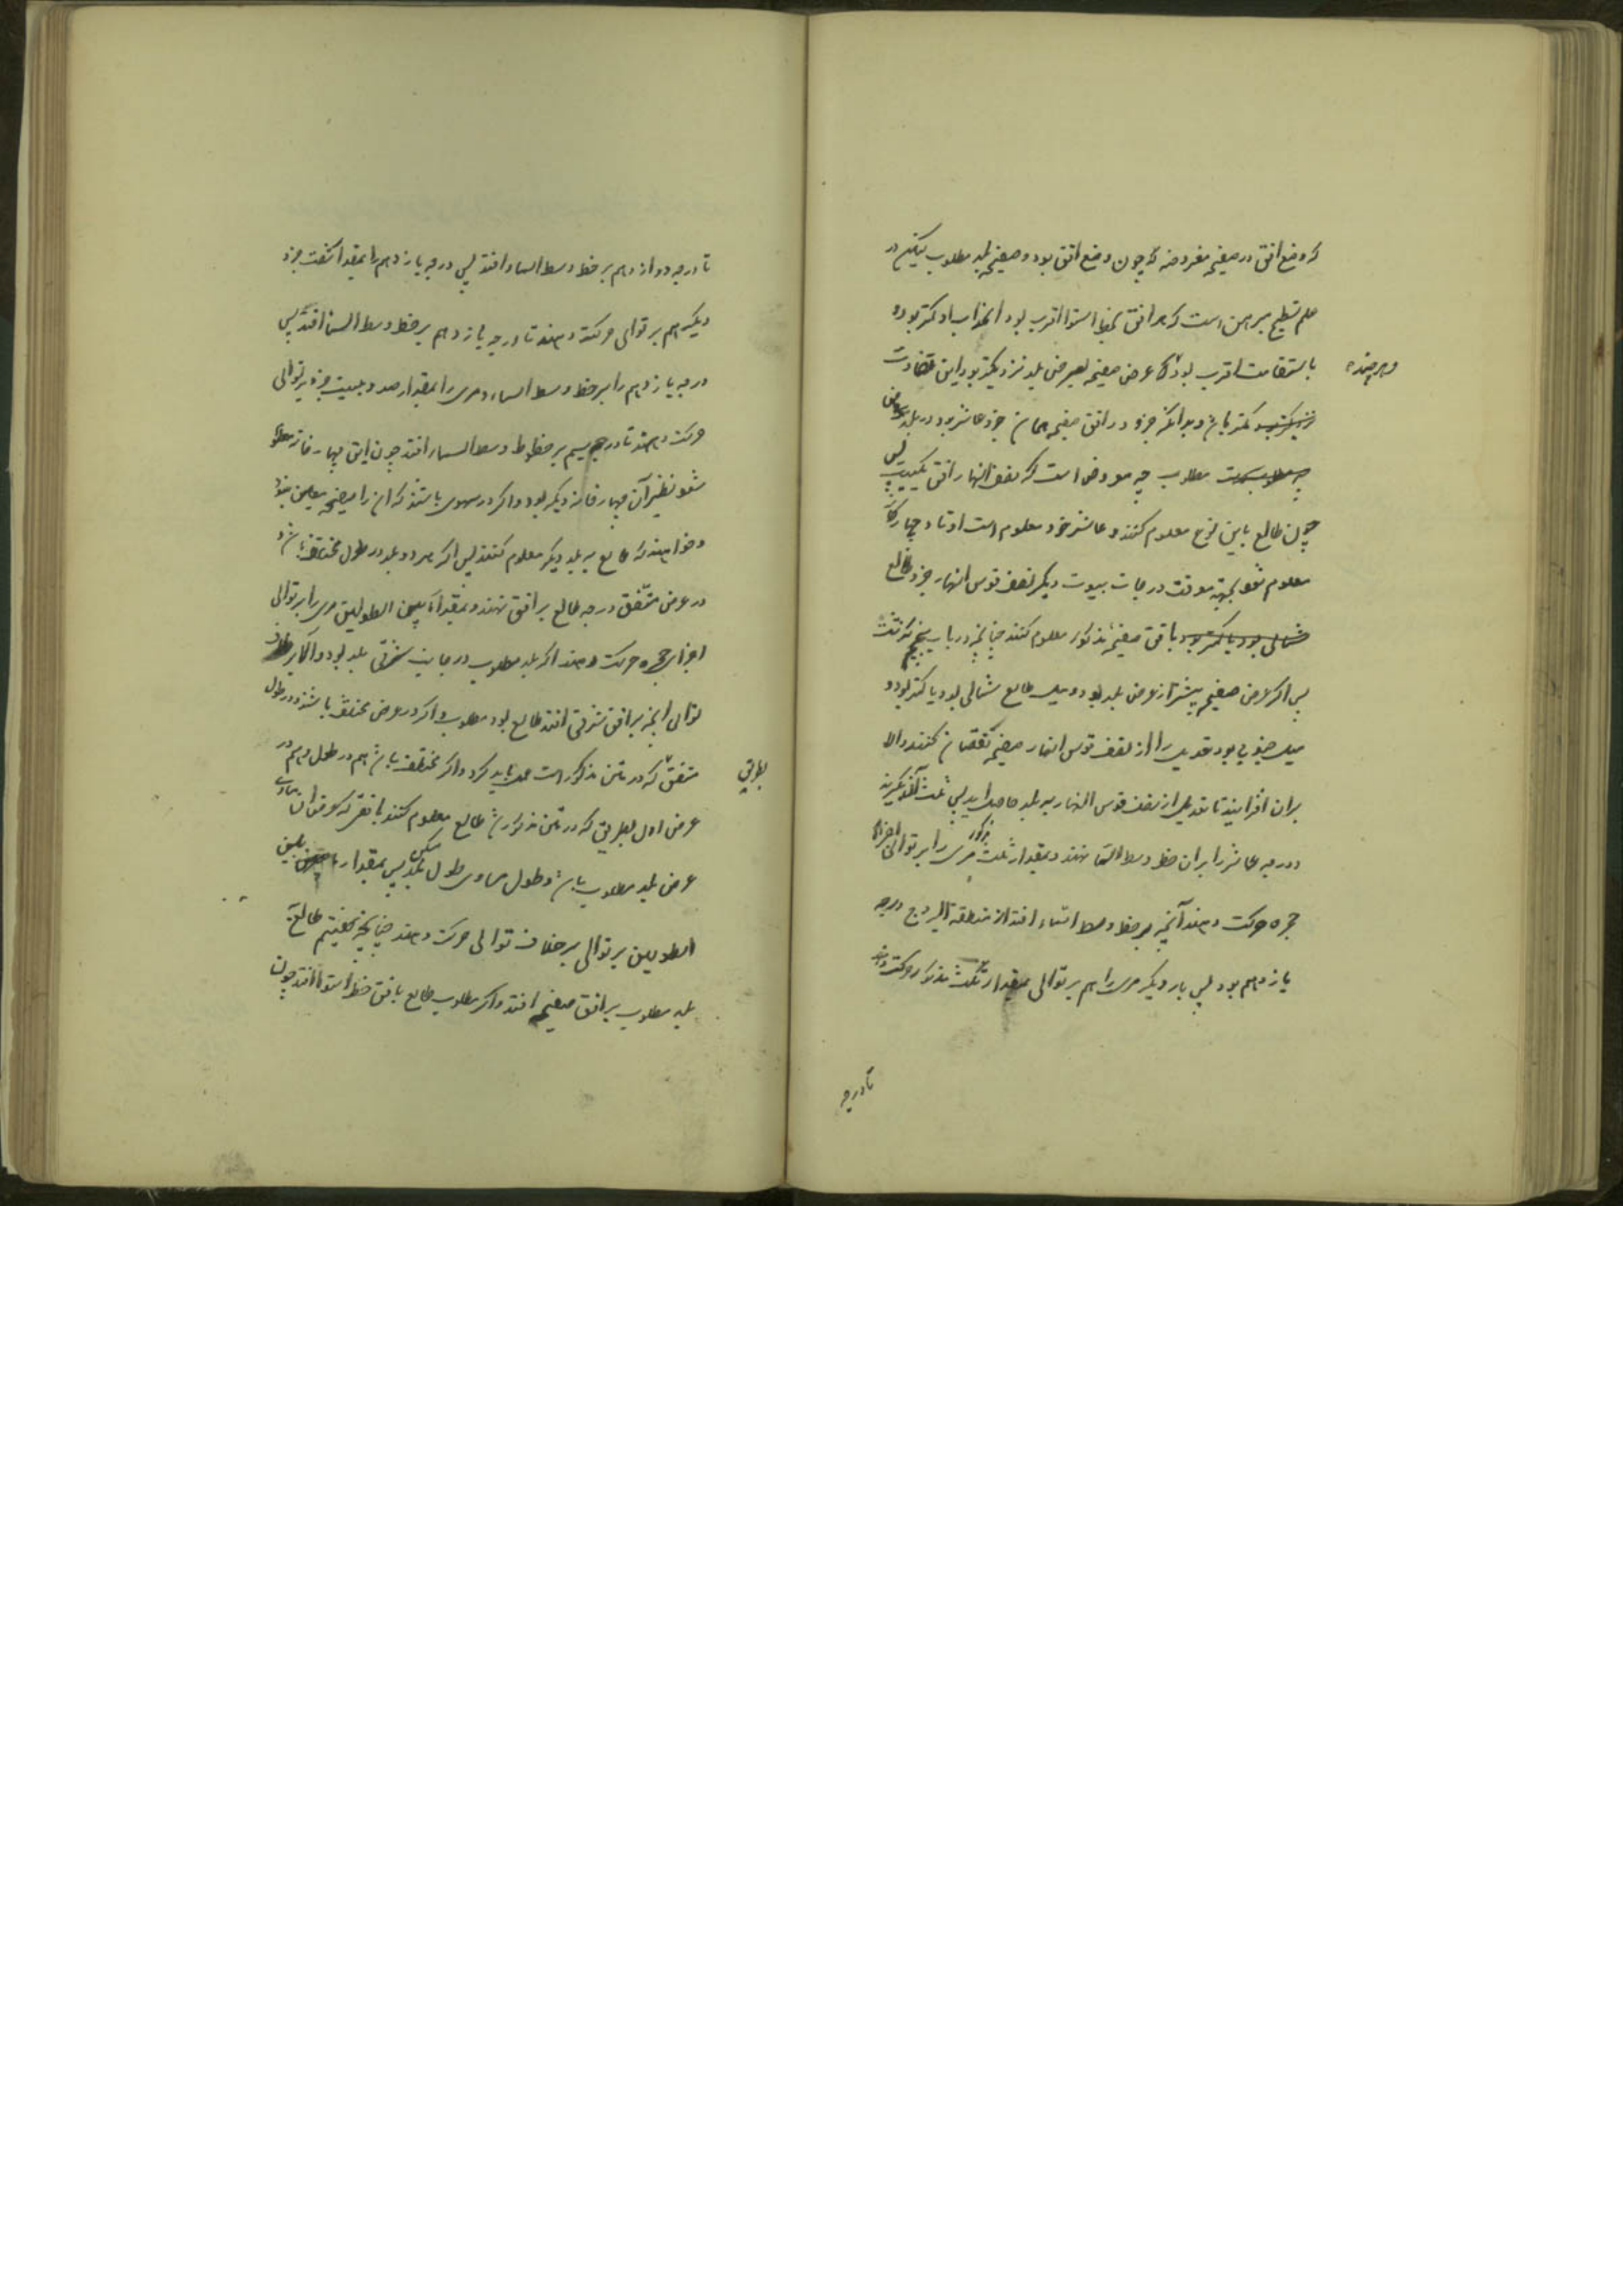 که وضع افق در صفیحه مفروضه که چون وضع افق بود و صفیحه بلد مطلوب نیکن در
علم تسطیح مبرهن است که هر افق بخط استوا اقرب بود انجذاب او کمتر بود و
باستقامت اقرب بود تا عرض صفیحه بعرض بلد نزدیکتر بود این تفاوت
وهرچند
کمتر باشد و بدانکه جزو در افق صفیحه همان جزو عاشر بود در بلد
مطلوب چه مفروض است که نصف النهار افق یکیست پس
چون طالع باین نوع معلوم کنند و عاشر خود معلوم است اوتاد چهارگانه
معلوم شود بجهة معرفت درجات بیوت دیگر نصف قوس النهار جزو طالع
بافق صفیحه مذکور معلوم کنند چنانچه در باب پنجم گذشت
پس اگر عرض صفیحه بیشتر از عرض بلد بود و میل طالع شمالی بود یا کمتر بود و
میل جنوبی بود تعدیل را از نصف قوس النهار صفیحه نقصان کنند و الا
بران افزایند تا تعدیل از نصف قوس النهار به بلد حاصل اید پس ثلث آنرا بگیرند
و درجه عاشر را بران خط وسط السما نهند و بمقدار ثلث مذکور مری را بر توالی اجزاء
حجره حرکت دهند آنچه بر خط وسط السماء افتد از منطقة البروج درجه
یازدهم بود پس بار دیگر مری را هم بر توالی بمقدار ثلث مذکور حرکت دهند
تا درجه
تا درجه دوازدهم بر خط وسط السماء افتد پس درجه یازدهم را بمقدار شصت جزو
دیگر هم بر توالی حرکت دهند تا درجه یازدهم بر خط وسط السما افتد پس
درجه یازدهم را بر خط وسط السماء و مری را بمقدار صد و بیست جزو بر توالی
حرکت دهند تا درجه سیم بر خط وسط السماء افتد چون این چهار خانه معلوم
شود نظیر آن چهار خانه دیگر بود و اگر در موضعی باشند که ان را صفیحه معین نبود
و خواهند که طالع به بلد دیگر معلوم کنند پس اگر هر دو بلد در طول مختلف باشد و
در عرض متفق درجه طالع بر افق نهند و بمقدار ما بین الطولین مری را بر توالی
اجزای حجره حرکت دهند اگر بلد مطلوب در جانب شرقی بلد بود و الا بر خلاف
توالی انچه بر افق شرقی افتد طالع بود مطلوب و اگر در عرض مختلف باشند و در طول
متفق که در متن مذکور است عمل باید کرد و اگر مختلف باشد هم در طول و هم در
بطریق
عرض اول بطریق که در متن مذکور شد طالع معلوم کنند بافقی که عرض ان مساوی
عرض بلد مطلوب باشد و طول مساوی طول بلد مسکن پس بمقدار ما بین
الطولین بر توالی بر خلاف توالی حرکت دهند چنانچه گفتیم طالع
بلد مطلوب بر افق صفیحه افتد و اگر مطلوب طالع بافق خط استوا افتد چون